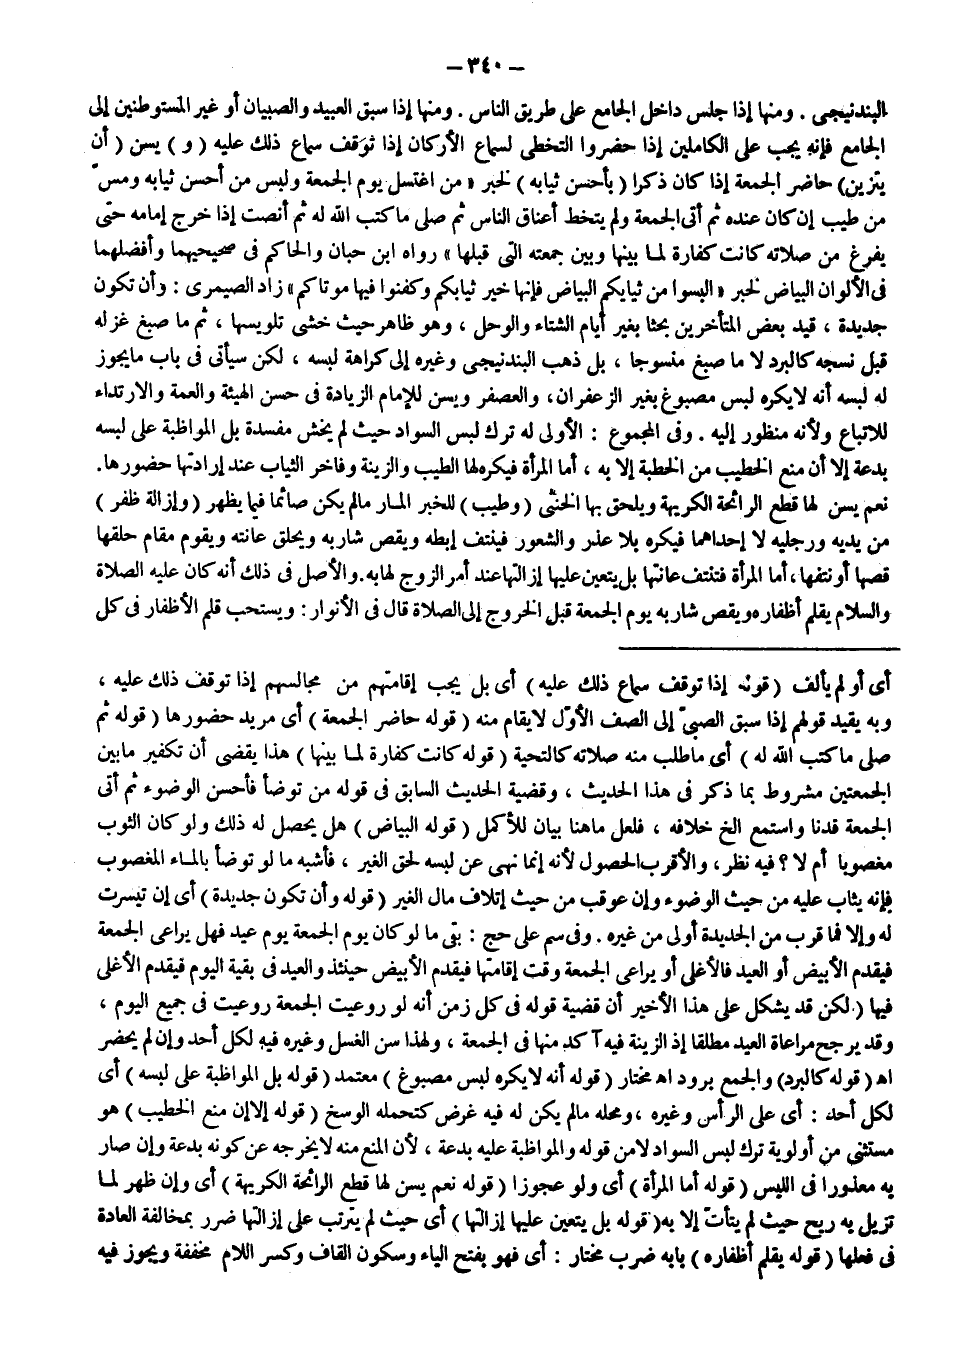 — ٣٤٠ —
البندنيجى . ومنها إذا جلس داخل الجامع على طريق الناس . ومنها إذا سبق العبيد والصبيان أو غير المستوطنين إلى
الجامع فإنه يجب على الكاملين إذا حضروا التخطى لسماع الأركان إذا توقف سماع ذلك عليه ( و ) يسن ( أن
يتزين) حاضر الجمعة إذا كان ذكرا ( بأحسن ثيابه ) لخبر « من اغتسل يوم الجمعة ولبس من أحسن ثيابه ومسّ
من طيب إن كان عنده ثم أتى الجمعة ولم يتخط أعناق الناس ثم صلى ما كتب الله له ثم أنصت إذا خرج إمامه حتى
يفرغ من صلاته كانت كفارة لما بينها وبين جمعته التى قبلها » رواه ابن حبان والحاكم فى صحيحيهما وأفضلهما
فى الألوان البياض لخبر « البسوا من ثيابكم البياض فإنها خير ثيابكم وكفنوا فيها موتاكم » زاد الصيمرى : وأن تكون
جديدة ، قيد بعض المتأخرين بحثا بغير أيام الشتاء والوحل ، وهو ظاهر حيث خشى تلويسها ، ثم ما صبغ غزله
قبل نسجه كالبرد لا ما صبغ منسوجا ، بل ذهب البندنيجى وغيره إلى كراهة لبسه ، لكن سيأتى فى باب مايجوز
له لبسه أنه لايكره لبس مصبوغ بغير الزعفران ، والعصفر ويسن للإمام الزيادة فى حسن الهيئة والعمة والارتداء
للاتباع ولأنه منظور إليه . وفى المجموع : الأولى له ترك لبس السواد حيث لم يخش مفسدة بل المواظبة على لبسه
بدعة إلا أن منع الخطيب من الخطبة إلا به ، أما المرأة فيكره لها الطيب والزينة وفاخر الثياب عند إرادتها حضورها .
نعم يسن لها قطع الرائحة الكريهة ويلحق بها الخنثى ( وطيب ) للخبر المار مالم يكن صائما فيما يظهر ( وإزالة ظفر )
من يديه ورجليه لا إحداهما فيكره بلا عذر والشعور فينتف إبطه ويقص شاربه ويحلق عانته ويقوم مقام حلقها
قصها أو نتفها ، أما المرأة فتنتف عانتها بل يتعين عليها إزالتها عند أمر الزوج لها به . والأصل فى ذلك أنه كان عليه الصلاة
والسلام يقلم أظفاره ويقص شاربه يوم الجمعة قبل الخروج إلى الصلاة قال فى الأنوار : ويستحب قلم الأظفار فى كل
أى أو لم يألف ( قوله إذا توقف سماع ذلك عليه ) أى بل يجب إقامتهم من مجالسهم إذا توقف ذلك عليه ،
وبه يقيد قولهم إذا سبق الصبىّ إلى الصف الأوّل لايقام منه ( قوله حاضر الجمعة ) أى مريد حضورها ( قوله ثم
صلى ما كتب الله له ) أى ماطلب منه صلاته كالتحية ( قوله كانت كفارة لما بينها ) هذا يقضى أن تكفير مابين
الجمعتين مشروط بما ذكر فى هذا الحديث ، وقضية الحديث السابق فى قوله من توضأ فأحسن الوضوء ثم أتى
الجمعة فدنا واستمع الخ خلافه ، فلعل ماهنا بيان للأكمل ( قوله البياض ) هل يحصل له ذلك ولو كان الثوب
مغصوبا أم لا ؟ فيه نظر ، والأقرب الحصول لأنه إنما نهى عن لبسه لحق الغير ، فأشبه ما لو توضأ بالماء المغصوب
فإنه يثاب عليه من حيث الوضوء وإن عوقب من حيث إتلاف مال الغير ( قوله وأن تكون جديدة ) أى إن تيسرت
له وإلا فما قرب من الجديدة أولى من غيره . وفى سم على حج : بقى ما لو كان يوم الجمعة يوم عيد فهل يراعى الجمعة
فيقدم الأبيض أو العيد فالأغلى أو يراعى الجمعة وقت إقامتها فيقدم الأبيض حينئذ والعيد فى بقية اليوم فيقدم الأغلى
فيها ( لكن قد يشكل على هذا الأخير أن قضية قوله فى كل زمن أنه لو روعيت الجمعة روعيت فى جميع اليوم ،
وقد يرجح مراعاة العيد مطلقا إذ الزينة فيه آكد منها فى الجمعة ، ولهذا سن الغسل وغيره فيه لكل أحد وإن لم يحضر
اه ( قوله كالبرد ) والجمع برود اه مختار ( قوله أنه لايكره لبس مصبوغ ) معتمد ( قوله بل المواظبة على لبسه ) أى
لكل أحد : أى على الرأس وغيره ، ومحله مالم يكن له فيه غرض كتحمله الوسخ ( قوله إلا إن منع الخطيب ) هو
مستثنى من أولوية ترك لبس السواد لامن قوله والمواظبة عليه بدعة ، لأن المنع منه لايخرجه عن كونه بدعة وإن صار
به معذورا فى اللبس ( قوله أما المرأة ) أى ولو عجوزا ( قوله نعم يسن لها قطع الرائحة الكريهة ) أى وإن ظهر لما
تزيل به ريح حيث لم يتأتّ إلا به ( قوله بل يتعين عليها إزالتها ) أى حيث لم يترتب على إزالتها ضرر بمخالفة العادة
فى فعلها ( قوله يقلم أظفاره ) بابه ضرب مختار : أى فهو بفتح الياء وسكون القاف وكسر اللام مخففة ويجوز فيه